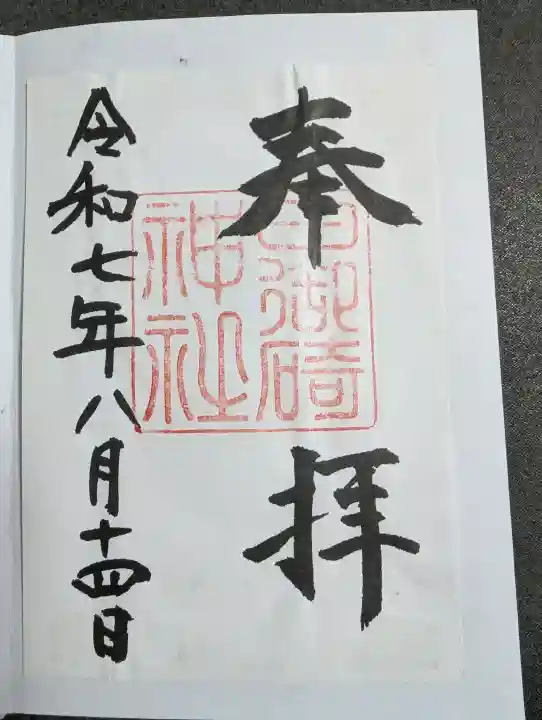 奉拝
日御碕
神社
令和七年八月十四日